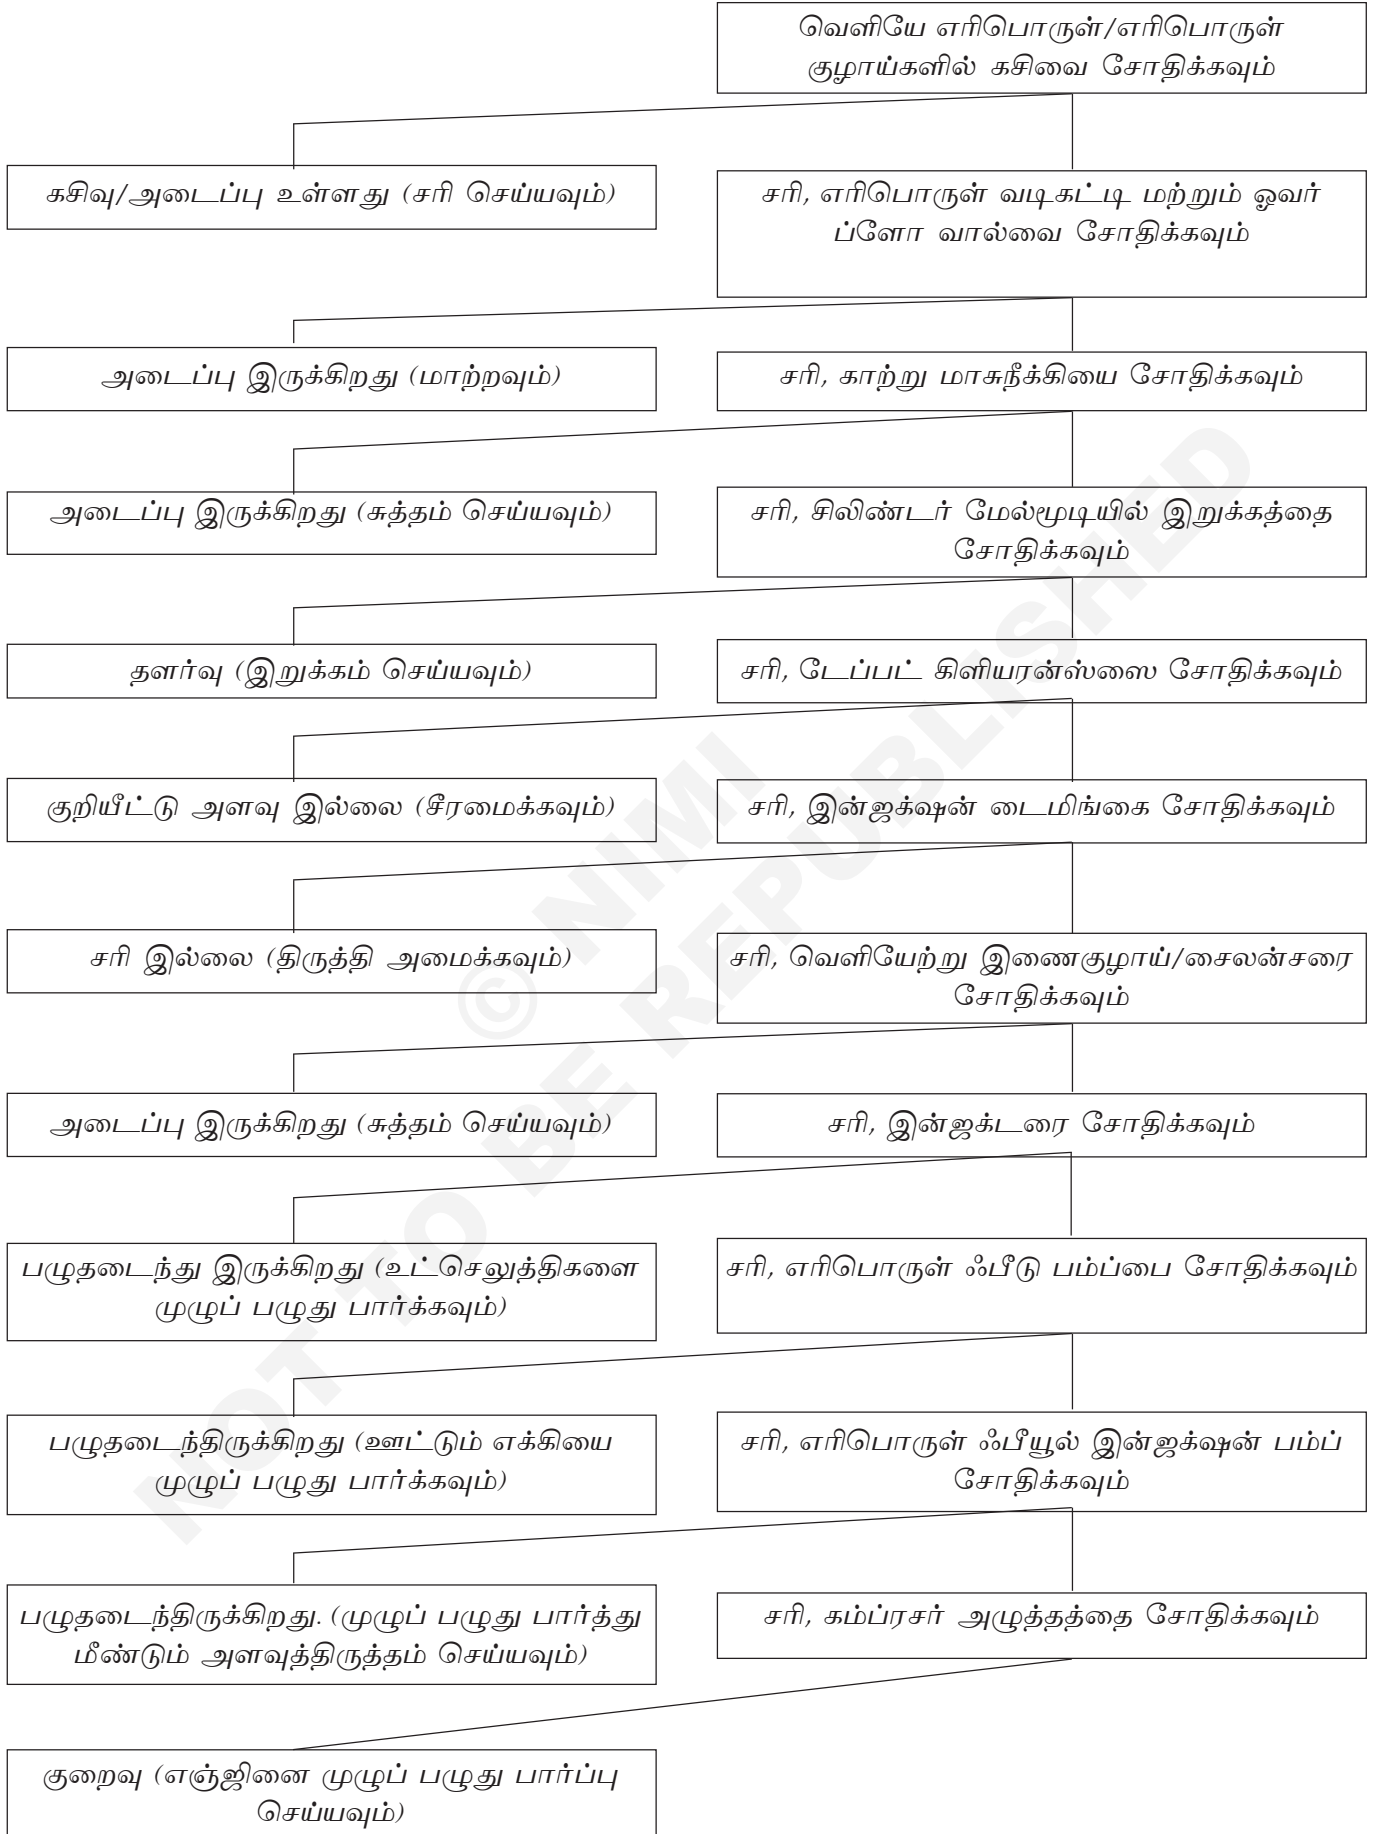 வெளியே எரிபொருள்/எரிபொருள்
குழாய்களில் கசிவை சோதிக்கவும்
கசிவு/அடைப்பு உள்ளது (சரி செய்யவும்)
சரி, எரிபொருள் வடிகட்டி மற்றும் ஓவர்
ப்ளோ வால்வை சோதிக்கவும்
அடைப்பு இருக்கிறது (மாற்றவும்)
சரி, காற்று மாசுநீக்கியை சோதிக்கவும்
அடைப்பு இருக்கிறது (சுத்தம் செய்யவும்)
சரி, சிலிண்டர் மேல்மூடியில் இறுக்கத்தை
சோதிக்கவும்
தளர்வு (இறுக்கம் செய்யவும்)
சரி, டேப்பட் கிளியரன்ஸ்ஸை சோதிக்கவும்
குறியீட்டு அளவு இல்லை (சீரமைக்கவும்)
சரி, இன்ஜக்ஷன் டைமிங்கை சோதிக்கவும்
சரி இல்லை (திருத்தி அமைக்கவும்)
சரி, வெளியேற்று இணைகுழாய்/சைலன்சரை
சோதிக்கவும்
அடைப்பு இருக்கிறது (சுத்தம் செய்யவும்)
சரி, இன்ஜக்டரை சோதிக்கவும்
பழுதடைந்து இருக்கிறது (உட்செலுத்திகளை
முழுப் பழுது பார்க்கவும்)
சரி, எரிபொருள் ஃபீடு பம்ப்பை சோதிக்கவும்
பழுதடைந்திருக்கிறது (ஊட்டும் எக்கியை
முழுப் பழுது பார்க்கவும்)
சரி, எரிபொருள் ஃபீயூல் இன்ஜக்ஷன் பம்ப்
சோதிக்கவும்
பழுதடைந்திருக்கிறது. (முழுப் பழுது பார்த்து
மீண்டும் அளவுத்திருத்தம் செய்யவும்)
சரி, கம்ப்ரசர் அழுத்தத்தை சோதிக்கவும்
குறைவு (எஞ்ஜினை முழுப் பழுது பார்ப்பு
செய்யவும்)
© NIMI
NOT TO BE REPUBLISHED